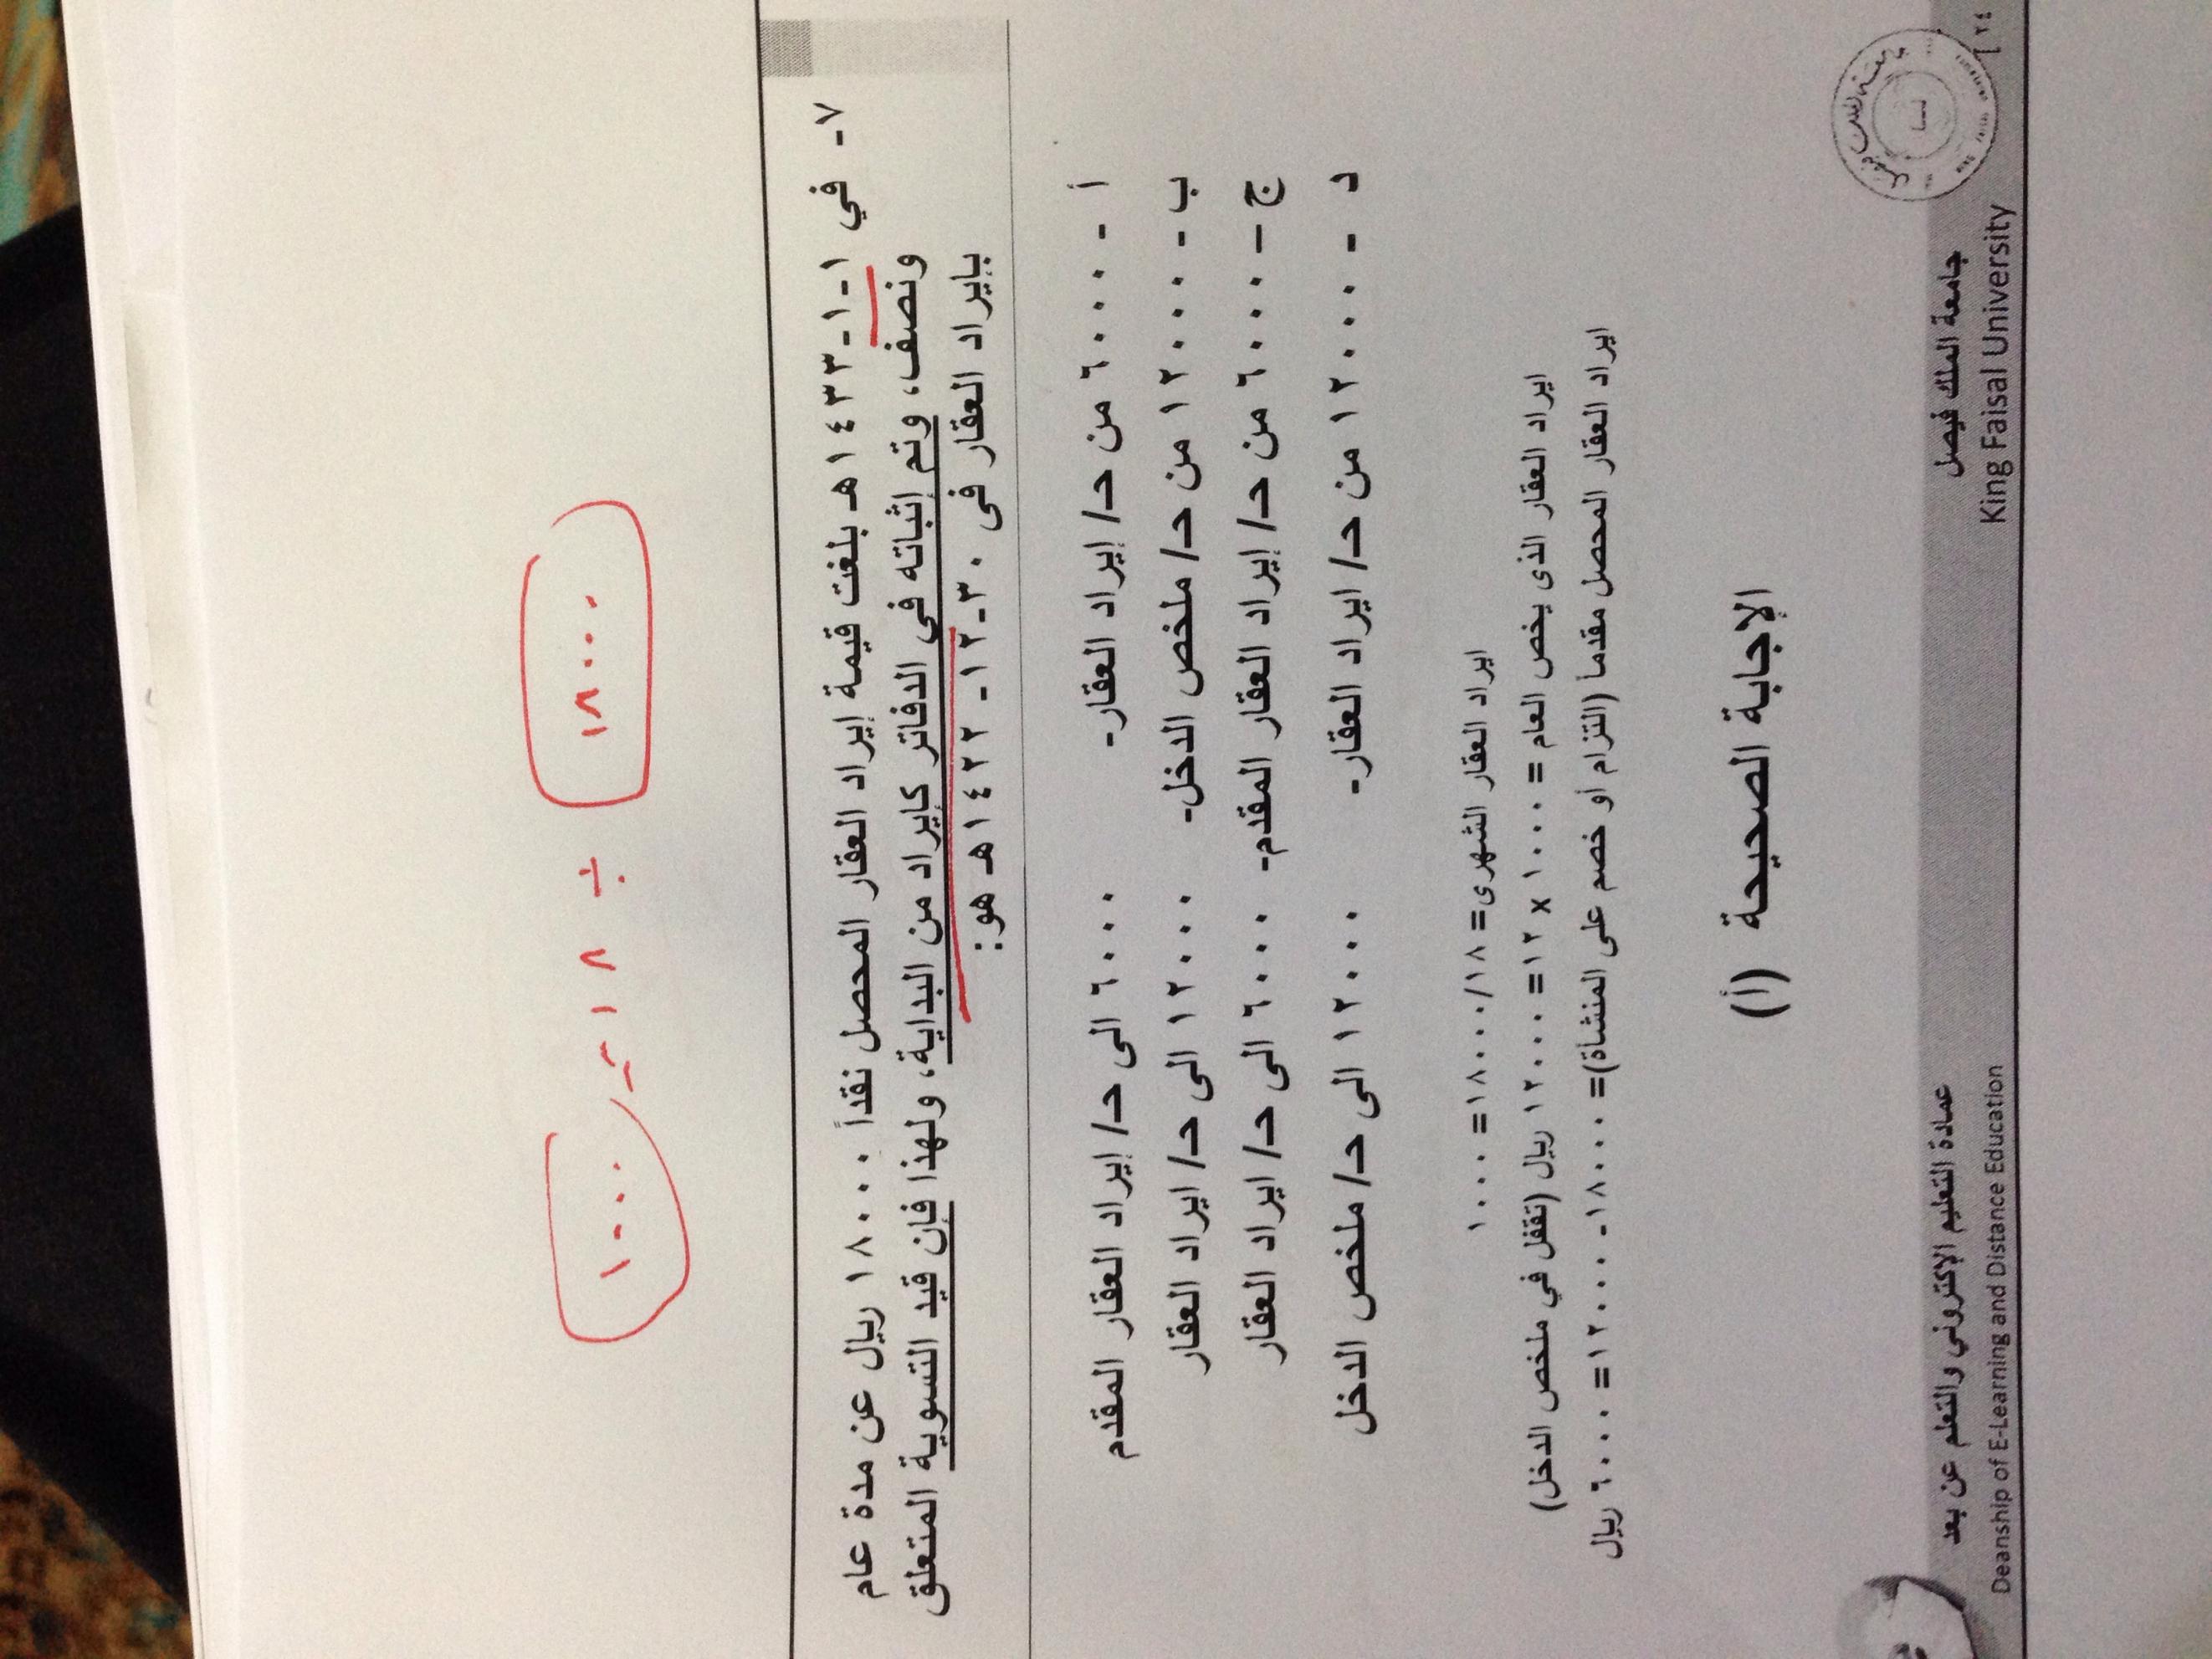 ١٨٠٠٠ ÷ ١٨ شهر ١٠٠٠
٧- في ١-١-١٤٣٣هـ بلغت قيمة إيراد العقار المحصل نقداً ١٨٠٠٠ ريال عن مدة عام
ونصف، وتم إثباته في الدفاتر كإيراد من البداية، ولهذا فإن قيد التسوية المتعلق
بإيراد العقار فى ٣٠-١٢-١٤٢٢هـ هو:
أ - ٦٠٠٠ من حـ/ إيراد العقار- ٦٠٠٠ الى حـ/ إيراد العقار المقدم
ب - ١٢٠٠٠ من حـ/ ملخص الدخل- ١٢٠٠٠ الى حـ/ ايراد العقار
ج – ٦٠٠٠ من حـ/ إيراد العقار المقدم- ٦٠٠٠ الى حـ/ ايراد العقار
د - ١٢٠٠٠ من حـ/ ايراد العقار- ١٢٠٠٠ الى حـ/ ملخص الدخل
ايراد العقار الشهرى= ١٨٠٠٠/١٨= ١٠٠٠
ايراد العقار الذى يخص العام = ١٠٠٠ x ١٢= ١٢٠٠٠ ريال (تقفل في ملخص الدخل)
ايراد العقار المحصل مقدماً (التزام أو خصم على المنشأة)= ١٨٠٠٠-١٢٠٠٠= ٦٠٠٠ ريال
الإجابة الصحيحة (أ)
جامعة الملك فيصل
King Faisal University
عمادة التعليم الإكتروني والتعلم عن بعد
Deanship of E-Learning and Distance Education